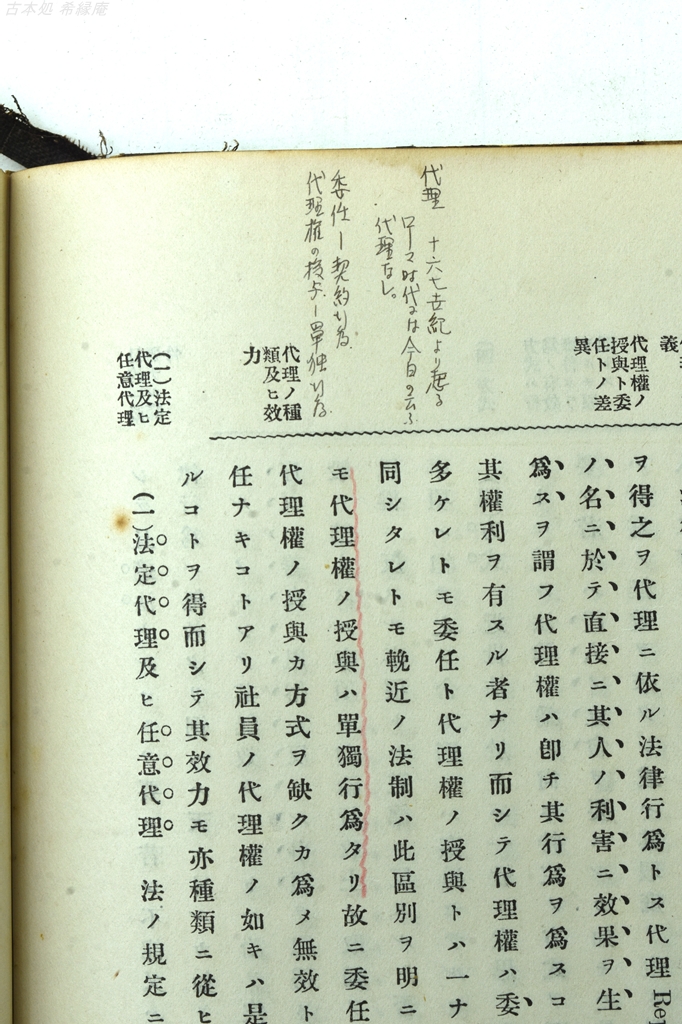 古本処 希縁庵
代理 十六七世紀より起る
ローマ時代には今日の云ふ
代理なし。
委任ー契約行為
代理権の授与ー単独行為
義
代理權ノ
授與ト委
任トノ差
異
代理ノ種
類及ヒ效
力
(一)法定
代理及ヒ
任意代理
ヲ得之ヲ代理ニ依ル法律行爲トス代理
ノ名ニ於テ直接ニ其人ノ利害ニ效果ヲ生
爲スヲ謂フ代理權ハ卽チ其行爲ヲ爲スコ
其權利ヲ有スル者ナリ而シテ代理權ハ委
多ケレトモ委任ト代理權ノ授與トハ一ナ
同シタレトモ輓近ノ法制ハ此區別ヲ明ニ
モ代理權ノ授與ハ單獨行爲タリ故ニ委任
代理權ノ授與カ方式ヲ缺クカ爲メ無效ト
任ナキコトアリ社員ノ代理權ノ如キハ是
ルコトヲ得而シテ其效力モ亦種類ニ從ヒ
(一)法定代理及ヒ任意代理 法ノ規定ニ